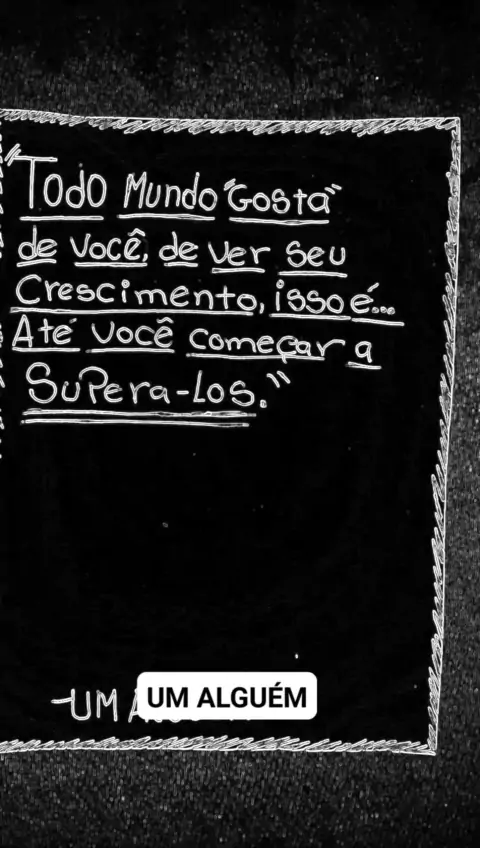 "Todo Mundo "Gosta"
de você, de ver seu
Crescimento, isso é...
Até você começar a
Supera-Los."
-UM
UM ALGUÉM